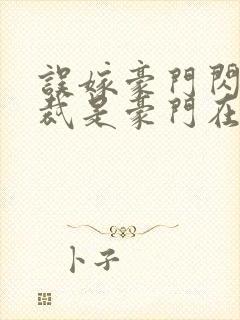 誤嫁豪門閃
裁是豪門在
卜子